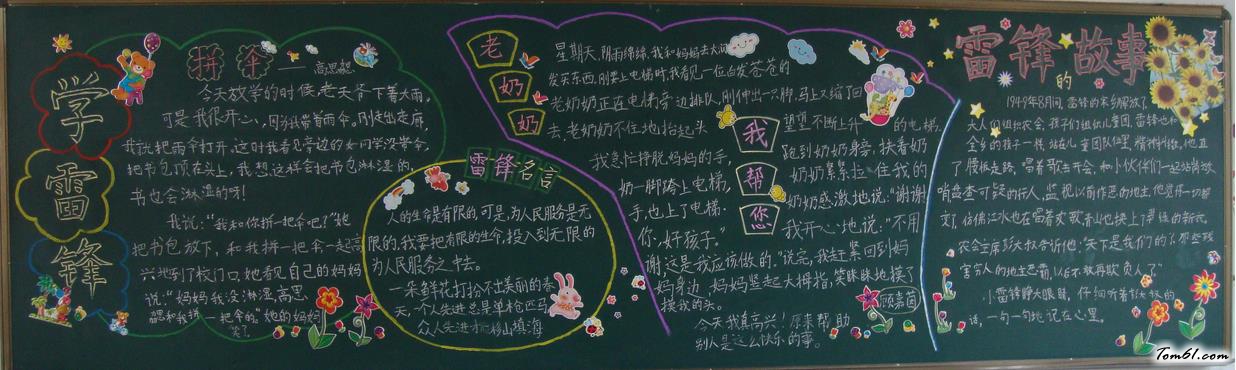 学雷锋
拼伞——高思懿
今天放学的时候,老天爷下着大雨。
可是我很开心,因为我带着雨伞。刚走出走廊,
我就把雨伞打开。这时我看见旁边的女同学没带伞,
把书包顶在头上,我想这样会把书包淋湿的,
书也会淋湿的呀!
我说:“我和你拼一把伞吧!”她
把书包放下,和我拼一把伞一起高
兴地到了校门口,她看见自己的妈妈
说:“妈妈我没淋湿,高思
懿和我拼一把伞的。”她的妈妈
笑了
雷锋名言
人的生命是有限的,可是,为人民服务是无
限的,我要把有限的生命,投入到无限的
为人民服务之中去。
一朵鲜花打扮不出美丽的春
天,一个人先进总是单枪匹马,
众人先进才能移山填海
老奶奶
我帮您
星期天,阴雨绵绵,我和妈妈去大润
发买东西,刚要上电梯时,我看见一位白发苍苍的
老奶奶正在电梯旁边排队,刚伸出一只脚,马上又缩了回
去,老奶奶不住地抬起头
望望不断上升的电梯.
我急忙挣脱妈妈的手,
跑到奶奶身旁,扶着奶
奶一脚跨上电梯,
奶奶紧紧拉住我的
手,也上了电梯.
奶奶感激地说:“谢谢
你,好孩子。”
我开心地说:“不用
谢,这是我应该做的。”说完,我赶紧回到妈
妈身边,妈妈竖起大拇指,笑眯眯地摸了
摸我的头。
顾嘉茵
今天我真高兴!原来帮助
别人是这么快乐的事。
雷锋的故事
1949年8月间,雷锋的家乡解放了
大人们组织农会,孩子们组织儿童团,雷锋也和
全乡的孩子一样,站在儿童团队伍里,精神抖擞,他直
了腰板走路,唱着歌去开会,和小伙伴们一起站岗放
哨盘查可疑的行人,监视以前作恶的地主,他觉得一切都
变了,仿佛江水也在唱着欢歌,青山也换上了
农会主席彭大叔告诉他:“天下是我们的了,那些残
害穷人的地主恶霸,以后不敢再欺负人了”
小雷锋睁大眼睛,仔细听着彭大叔的
话,一句一句地记在心里。
Tom61.com